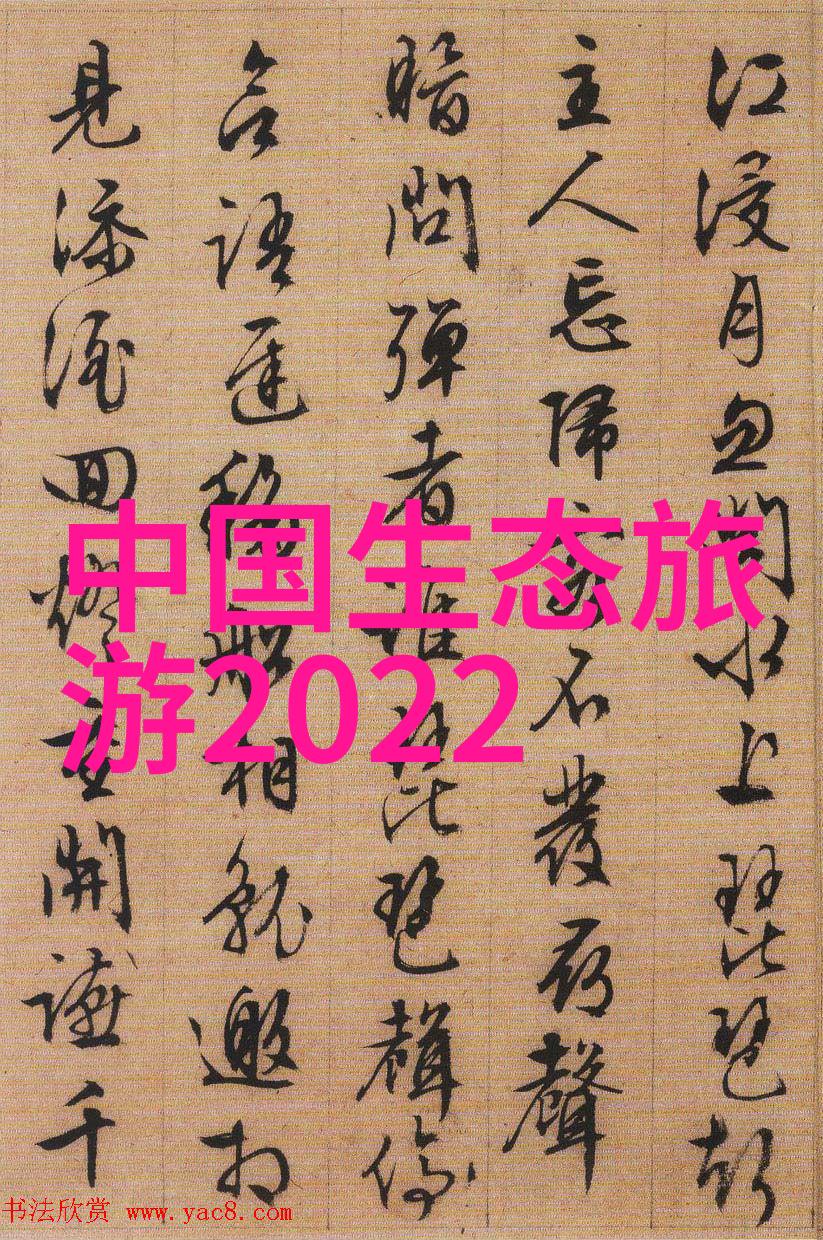 江浸月忽聞水上琵琶聲
主人忘歸客不發尋聲
暗問彈者誰琵琶聲停
語遲移船相就邀相
見添酒回燈重開讌千
中国生态旅
游2022
书法欣赏 www.yac8.com